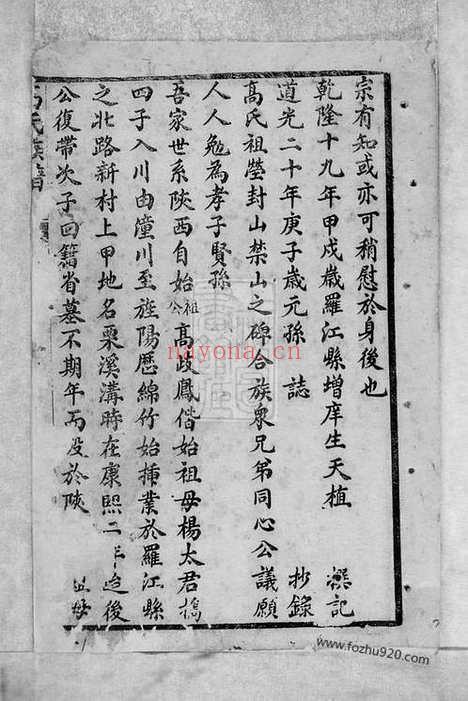 宗有知或亦可稍慰於身後也
乾隆十九年甲戌歲羅江縣增庠生天植 撰記
道光二十年庚子歲元孫 誌 抄錄
高氏祖塋封山禁山之碑合族衆兄弟同心公議願
人人勉為孝子賢孫
吾家世系陝西自始祖公高政鳳偕始祖母楊太君攜
四子入川由潼川至旌陽歷綿竹始插業於羅江縣
之北路新村上甲地名栗溪溝時在康熙二 後
公復帶次子回籍省墓不期年而没於陝
氏族譜
nayona.cn
www.fozhu920.com